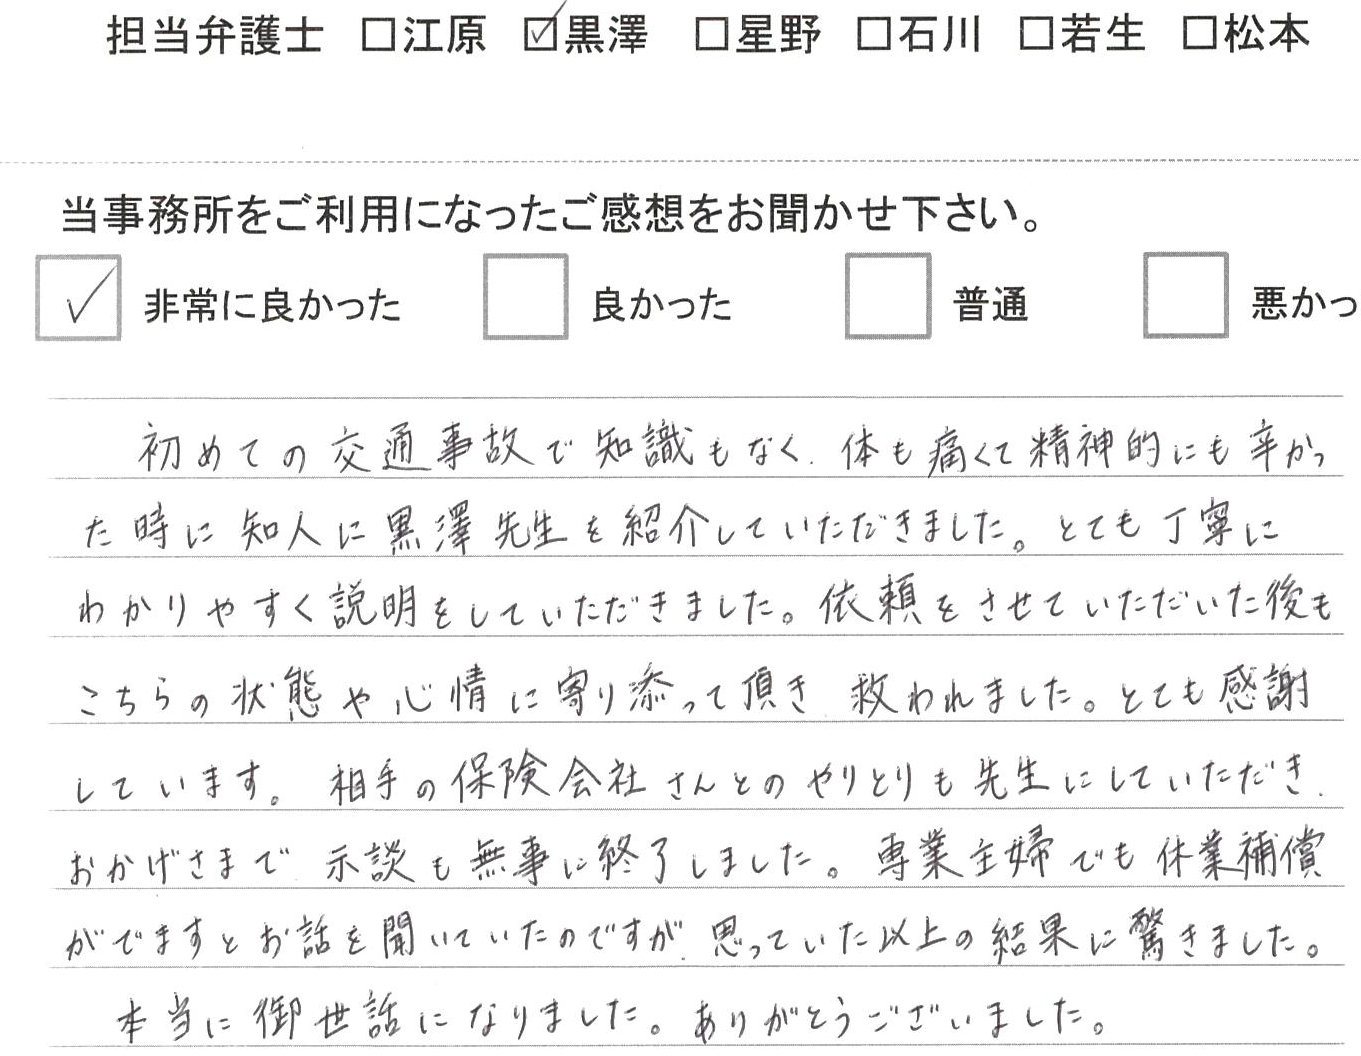 担当弁護士 □江原 ☑黒澤 □星野 □石川 □若生 □松本
当事務所をご利用になったご感想をお聞かせ下さい。
☑ 非常に良かった □ 良かった □ 普通 □ 悪かっ
初めての交通事故で知識もなく、体も痛くて精神的にも辛かっ
た時に知人に黒澤先生を紹介していただきました。とても丁寧に
わかりやすく説明をしていただきました。依頼をさせていただいた後も
こちらの状態や心情に寄り添って頂き 救われました。とても感謝
しています。相手の保険会社さんとのやりとりも先生にしていただき、
おかげさまで 示談も無事に終了しました。専業主婦でも休業補償
がでますとお話を聞いていたのですが、思っていた以上の結果に驚きました。
本当に御世話になりました。ありがとうございました。